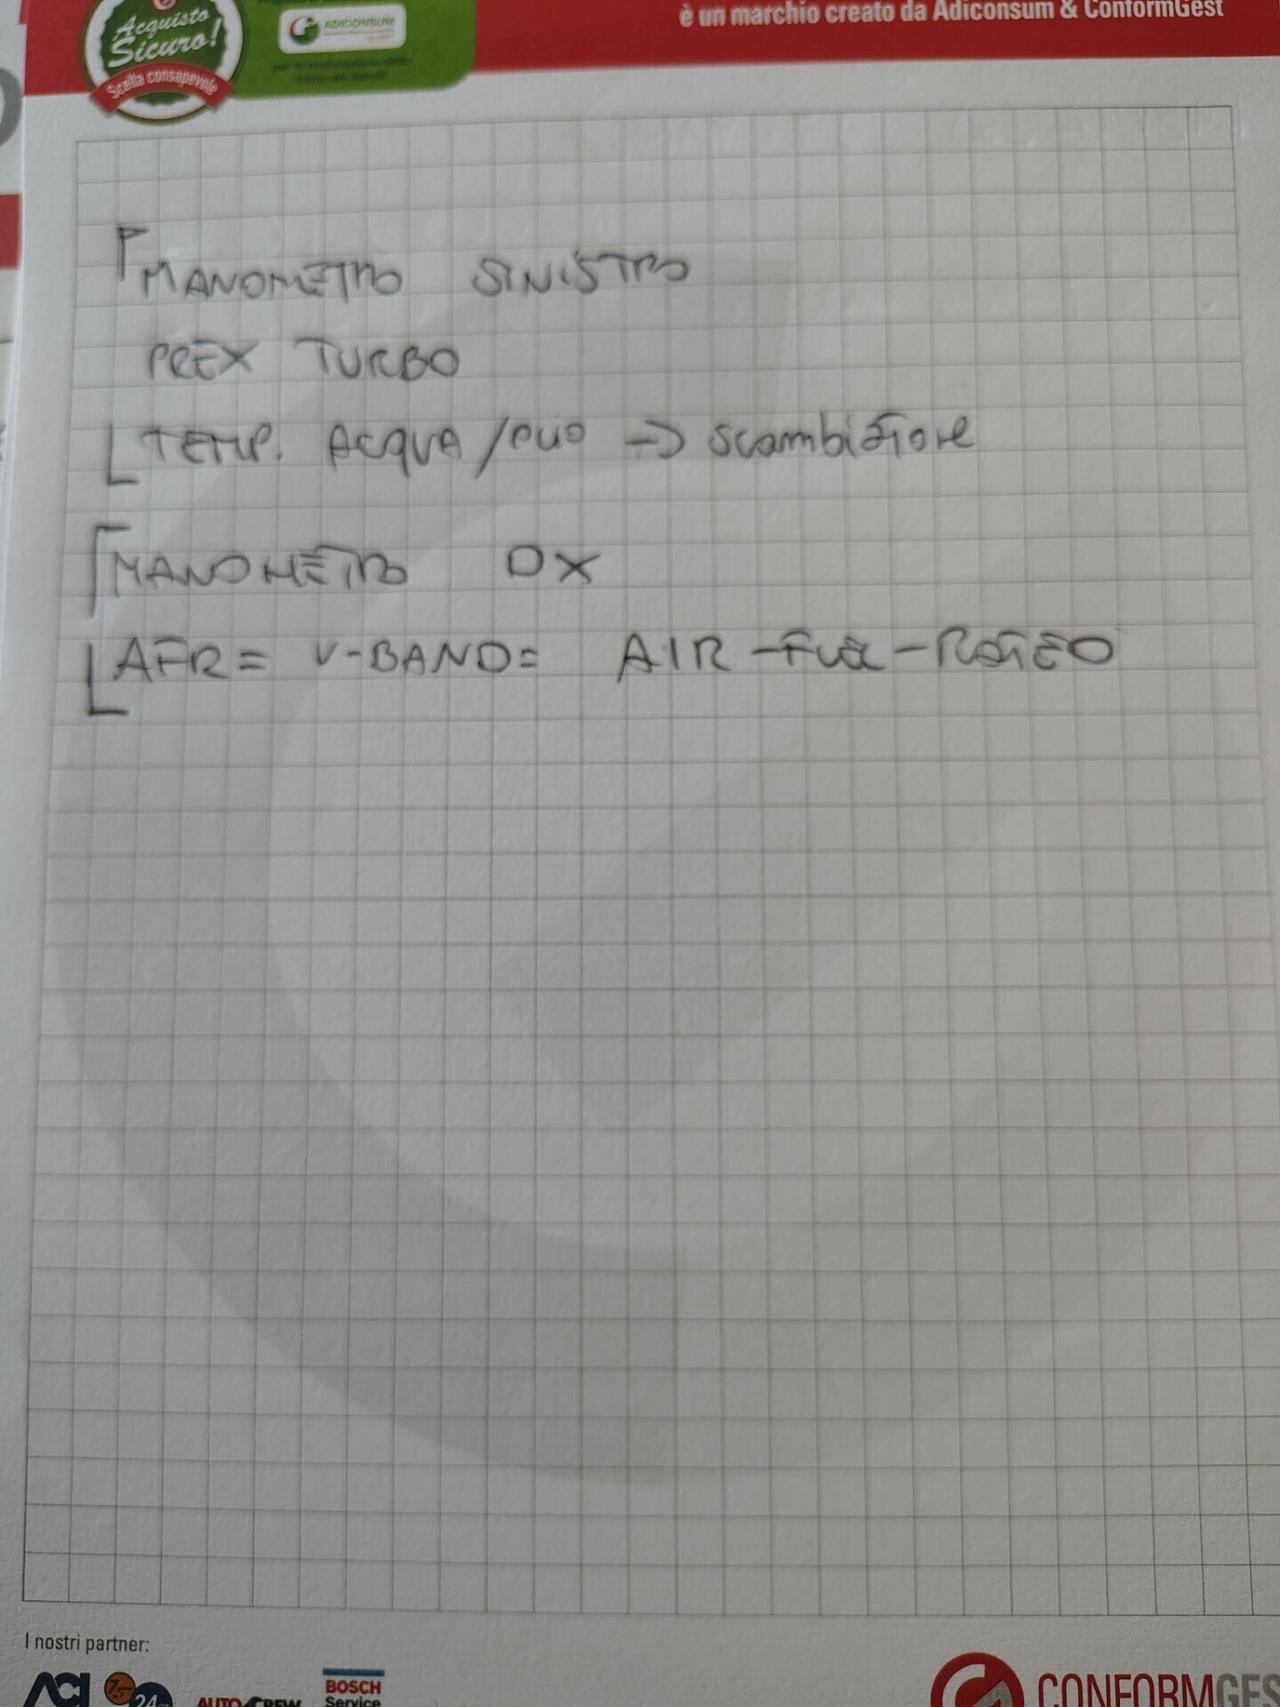 Acquisto
Sicuro!
Scelta consapevole
ADICONSUM
è un marchio creato da Adiconsum & ConformGest
MANOMETRO SINISTRO
PREX TURBO
TEMP. ACQUA / OLIO -> scambiatore
MANOMETRO DX
AFR = V-BAND = AIR - FUEL - RATEO
I nostri partner:
ACI
24
AUTO CREW
BOSCH
Service
CONFORMGES